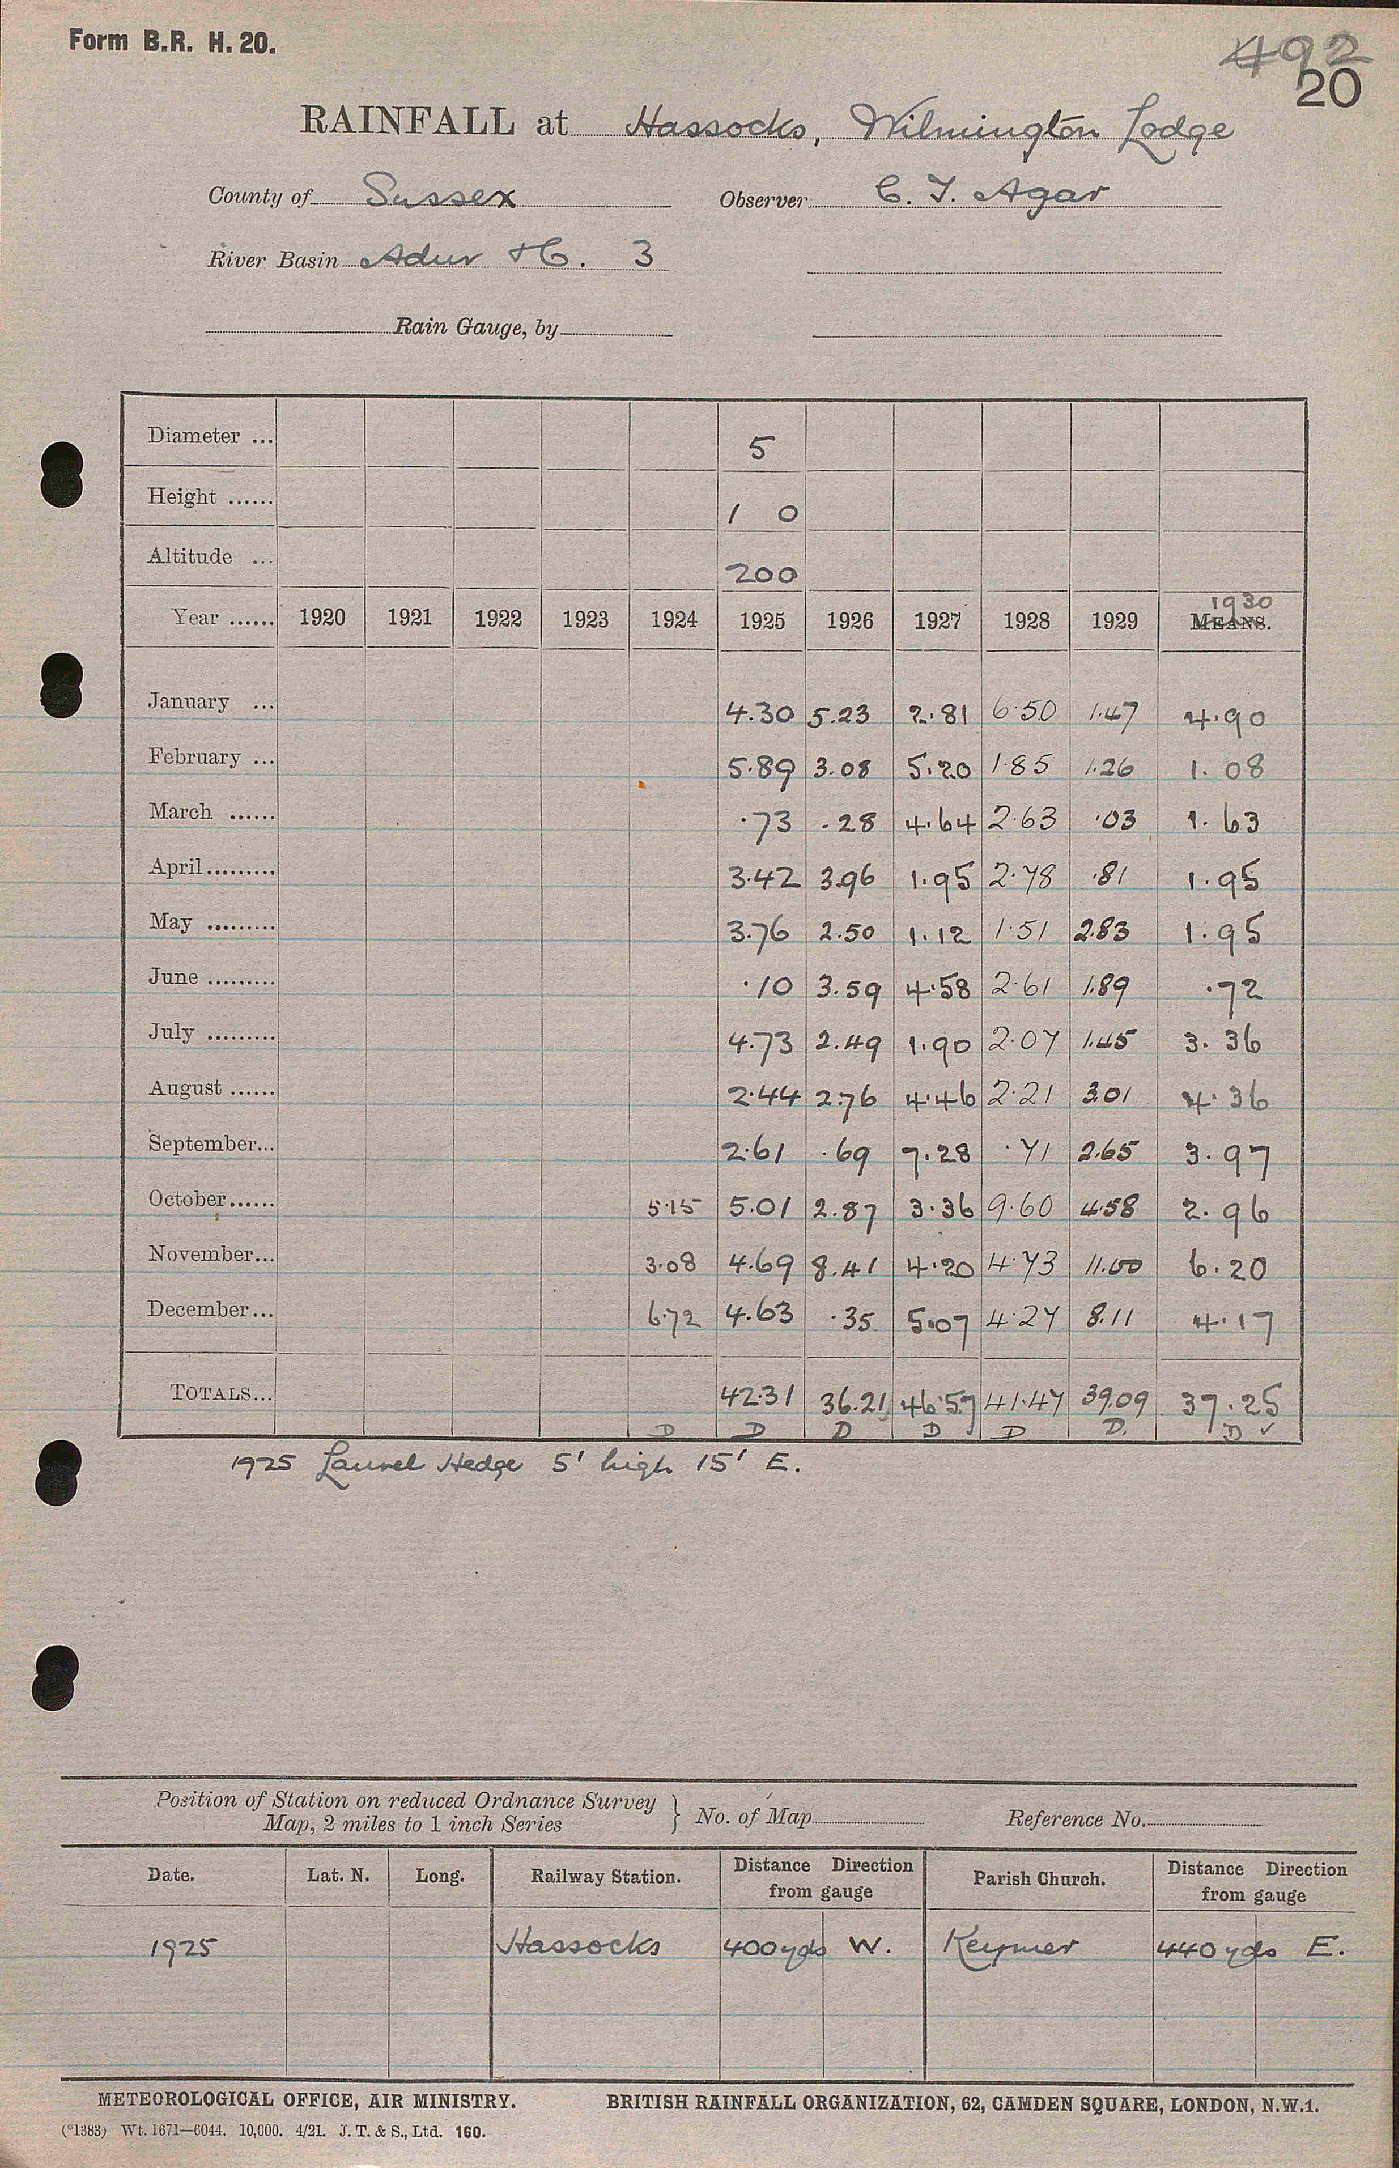 Form B.R. H. 20.
492
20
RAINFALL at Hassocks, Wilmington Lodge
County of Sussex Observer C. T. Agar
River Basin Adur &C. 3
Rain Gauge, by
Diameter ... 5
Height ...... 1 0
Altitude ... 200
1930
Year ...... 1920 1921 1922 1923 1924 1925 1926 1927 1928 1929 MEANS.
January ... 4.30 5.23 2.81 6.50 1.47 4.90
February ... 5.89 3.08 5.20 1.85 1.26 1.08
March ...... .73 .28 4.64 2.63 .03 1.63
April......... 3.42 3.96 1.95 2.78 .81 1.95
May ......... 3.76 2.50 1.12 1.51 2.83 1.95
June ......... .10 3.59 4.58 2.61 1.89 .72
July ......... 4.73 2.49 1.90 2.07 1.45 3.36
August ...... 2.44 2.76 4.46 2.21 3.01 4.36
September... 2.61 .69 7.28 .71 2.65 3.97
October...... 5.15 5.01 2.87 3.36 9.60 4.58 2.96
November... 3.08 4.69 8.41 4.20 4.73 11.00 6.20
December... 6.72 4.63 .35 5.07 4.27 8.11 4.17
TOTALS... 42.31 36.21 46.57 41.47 39.09 37.25
D D D D D D. D ✓
1925 Laurel Hedge 5' high 15' E.
Position of Station on reduced Ordnance Survey
Map, 2 miles to 1 inch Series } No. of Map Reference No.
Date. Lat. N. Long. Railway Station. Distance Direction from gauge Parish Church. Distance Direction from gauge
1925 Hassocks 400 yds W. Keymer 440 yds E.
METEOROLOGICAL OFFICE, AIR MINISTRY. BRITISH RAINFALL ORGANIZATION, 62, CAMDEN SQUARE, LONDON, N.W.1.
(*1383) Wt. 1671—6044. 10,000. 4/21. J. T. & S., Ltd. 160.